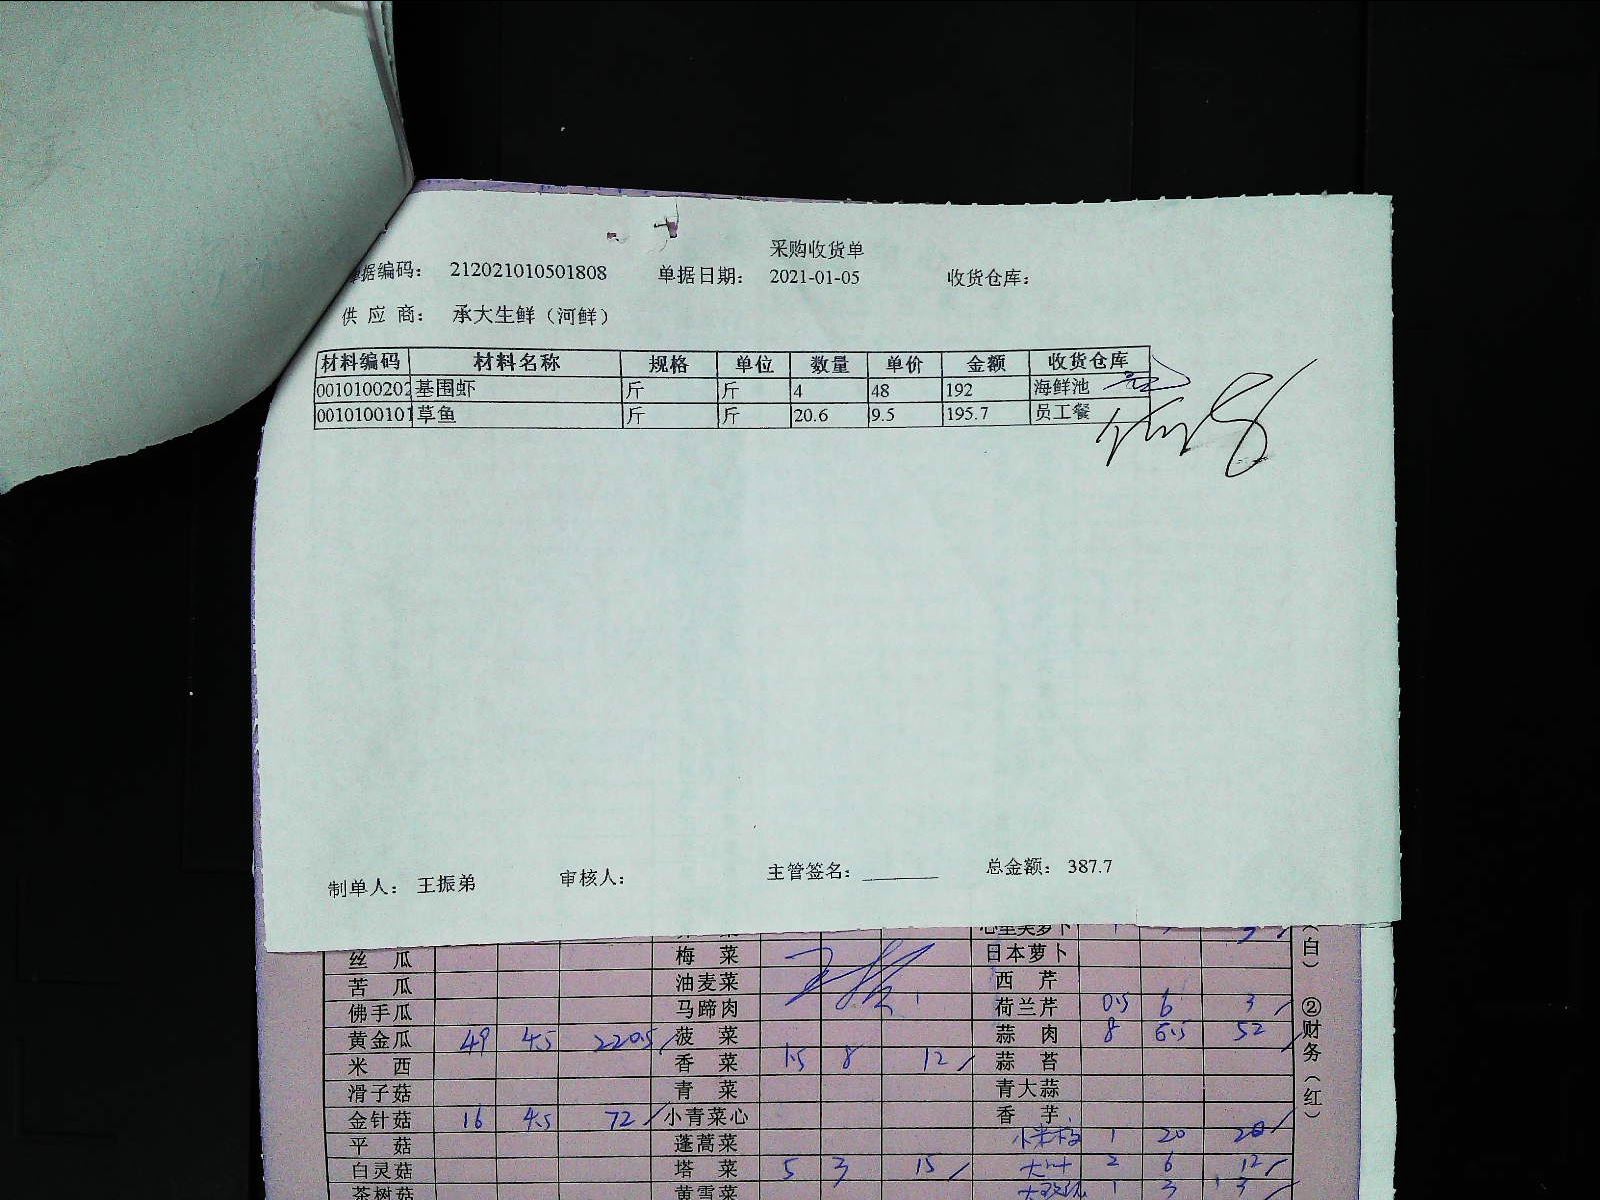 采购收货单
单据编码： 212021010501808 单据日期： 2021-01-05 收货仓库：
供应商： 承大生鲜（河鲜）
材料编码 材料名称 规格 单位 数量 单价 金额 收货仓库
0010100202 基围虾 斤 斤 4 48 192 海鲜池
0010100101 草鱼 斤 斤 20.6 9.5 195.7 员工餐
制单人： 王振弟 审核人： 主管签名： 总金额： 387.7
心里美萝卜
丝瓜 梅菜 日本萝卜
苦瓜 油麦菜 西芹
佛手瓜 马蹄肉 荷兰芹 0.5 6 3
黄金瓜 49 4.5 220.5 菠菜 蒜肉 8 6.5 52
米西 香菜 1.5 8 12 蒜苔
滑子菇 青菜 青大蒜
金针菇 16 4.5 72 小青菜心 香芋
平菇 蓬蒿菜 小米椒 1 20 20
白灵菇 塔菜 5 3 15 大叶 2 6 12
茶树菇 黄雪菜 1 3 3
（白） ②财务（红）